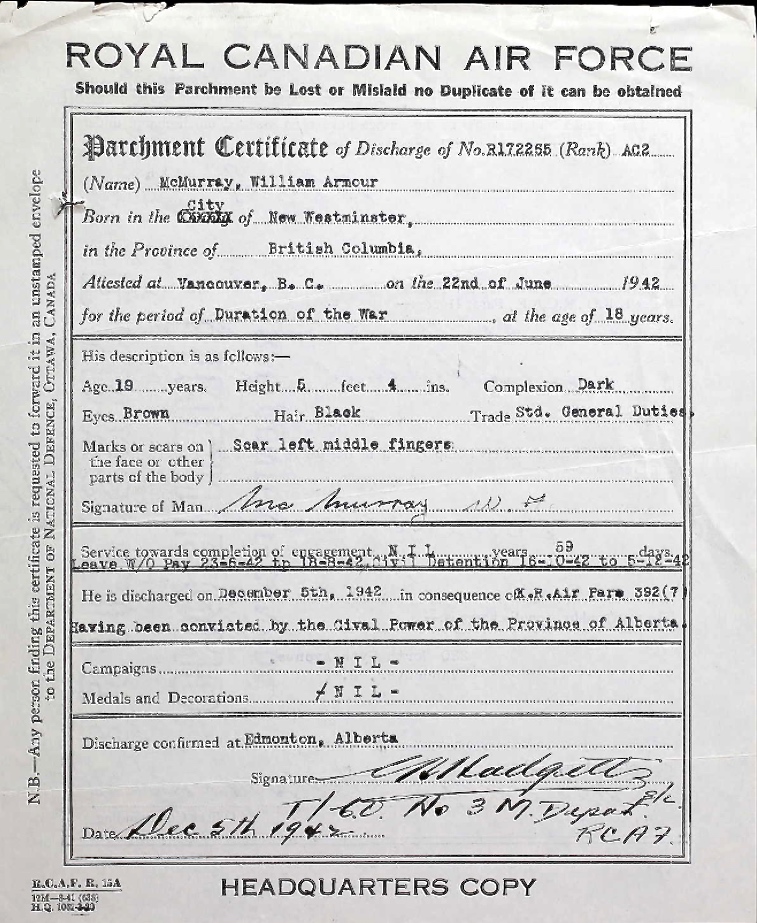 ROYAL CANADIAN AIR FORCE
Should this Parchment be Lost or Mislaid no Duplicate of it can be obtained
Parchment Certificate of Discharge of No. R172265 (Rank) AC2
(Name) McMurray, William Armour
City
Born in the of New Westminster,
in the Province of British Columbia,
Attested at Vancouver, B. C. on the 22nd of June 1942
for the period of Duration of the War, at the age of 18 years.
His description is as follows:—
Age 19 years. Height 5 feet 4 ins. Complexion Dark
Eyes Brown Hair Black Trade Std. General Duties.
Marks or scars on Scar left middle fingers
the face or other
parts of the body
Signature of Man McMurray W A
Service towards completion of engagement N I L years 59 days.
Leave W/O Pay 23-6-42 tp 18-8-42 Civil Detention 16-10-42 to 5-12-42
He is discharged on December 5th, 1942 in consequence of K.R.Air Para 392(7)
Having been convicted by the Cival Power of the Province of Alberta.
Campaigns - N I L -
Medals and Decorations / N I L -
Discharge confirmed at Edmonton, Alberta
Signature Hadgetts
T/CO. No 3 M. Depot
RCAF.
Date Dec 5th 1942
R.C.A.F. R. 15A
12M—8-41 (638)
H.Q. 1062
HEADQUARTERS COPY
N.B.—Any person finding this certificate is requested to forward it in an unstamped envelope
to the DEPARTMENT OF NATIONAL DEFENCE, OTTAWA, CANADA